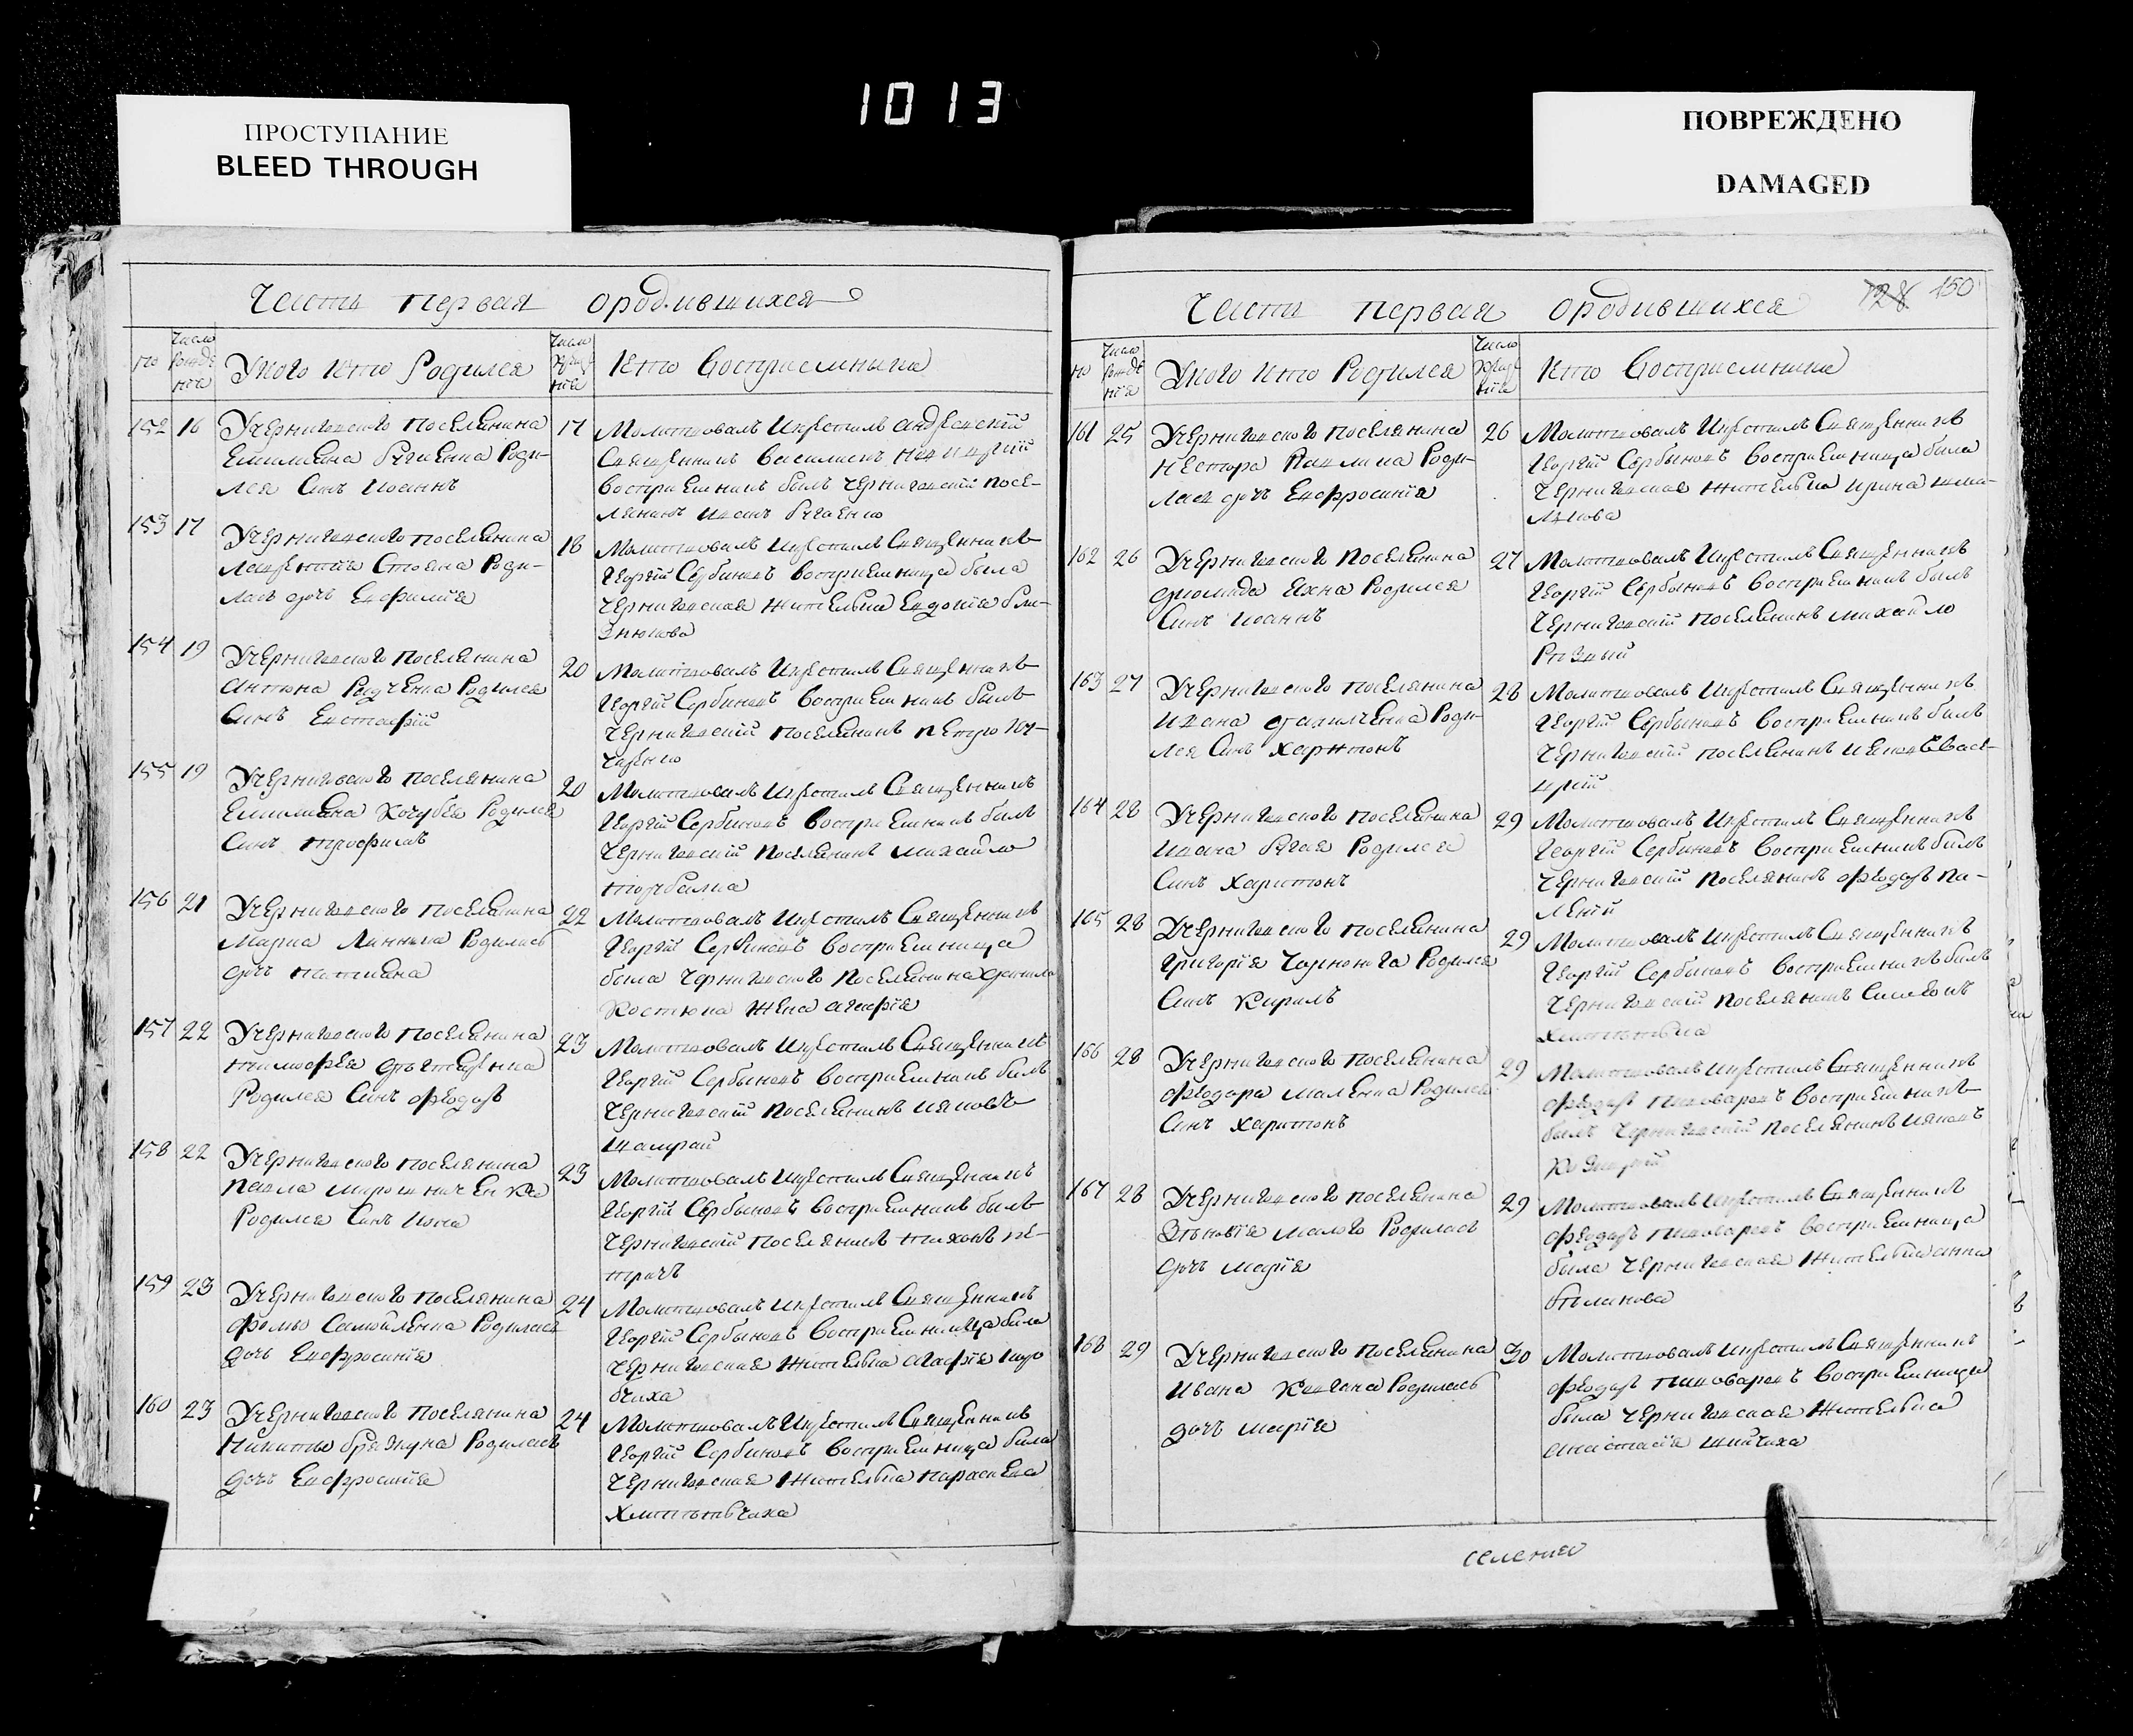 1013
ПРОСТУПАНИЕ
BLEED THROUGH
ПОВРЕЖДЕНО
DAMAGED
Части первая ородившихся
№
Число рождения
Укого кто Родился
Число крещения
Кто Восприемныка
152 16 Учерниговского поселянина
Емилияна Бугаенка Роди-
лся Синъ Иоаннъ
17 Молитвовалъ Икрестилъ андреевский
Священникъ Василиевъ
восприемникъ былъ черниговский посе-
лянинъ Иванъ Бугаенко
153 17 Учерниговского поселянина
Лаврентия Стояна Роди-
лась дочь Евфимия
18 Молитвовалъ Икрестилъ Священникъ
Георгий Сербиновъ восприемница была
черниговская жителька Евдокия Бли-
знюкова
154 19 Учерниговского поселянина
Антона Радченка Родился
Синъ Евстафий
20 Молитвовалъ Икрестилъ Священникъ
Георгий Сербиновъ восприемникъ былъ
черниговский поселянинъ петро Ку-
черенко
155 19 Учерниговского поселянина
Емилияна Кочубея Родился
Синъ трофимъ
20 Молитвовалъ Икрестилъ Священникъ
Георгий Сербиновъ восприемникъ былъ
черниговский поселянинъ михайло
торбалка
156 21 Учерниговского поселянина
Марка Линника Родилась
дочь татияна
22 Молитвовалъ Икрестилъ Священникъ
Георгий Сербиновъ восприемница
была черниговского поселянина данила
Костюка жена агафия
157 22 Учерниговского поселянина
тимофея
Родился Синъ феодоръ
23 Молитвовалъ Икрестилъ Священникъ
Георгий Сербиновъ восприемникъ былъ
черниговский поселянинъ иаковъ
шамрай
158 22 Учерниговского поселянина
павла мирошниченка
Родился Синъ Иона
23 Молитвовалъ Икрестилъ Священникъ
Георгий Сербиновъ восприемникъ былъ
черниговский поселянинъ тихонъ
159 23 Учерниговского поселянина
фомы Самойленка Родилась
дочь Евфросиния
24 Молитвовалъ Икрестилъ Священникъ
Георгий Сербиновъ восприемница была
черниговская жителька агафия
160 23 Учерниговского поселянина
Никиты брязкуна Родилась
дочь Евфросиния
24 Молитвовалъ Икрестилъ Священникъ
Георгий Сербиновъ восприемница была
черниговская жителька параскева
Части первая ородившихся
128 150
№
Число рождения
Укого кто Родился
Число крещения
Кто Восприемника
161 25 Учерниговского поселянина
нестора павлика Роди-
лась дочь Евфросиния
26 Молитвовалъ Икрестилъ Священникъ
Георгий Сербиновъ восприемница была
черниговская жителька ирина
162 26 Учерниговского поселянина
диомида Яхна Родился
Синъ Иоаннъ
27 Молитвовалъ Икрестилъ Священникъ
Георгий Сербиновъ восприемникъ былъ
черниговский поселянинъ михайло
163 27 Учерниговского поселянина
Ивана данилченка Роди-
лся Синъ Харитонъ
28 Молитвовалъ Икрестилъ Священникъ
Георгий Сербиновъ восприемникъ былъ
черниговский поселянинъ иаковъ
164 28 Учерниговского поселянина
Ивана Бугая Родился
Синъ Харитонъ
29 Молитвовалъ Икрестилъ Священникъ
Георгий Сербиновъ восприемникъ былъ
черниговский поселянинъ феодоръ па-
165 28 Учерниговского поселянина
григория Чорнонога Родился
Синъ Кирилъ
29 Молитвовалъ Икрестилъ Священникъ
Георгий Сербиновъ восприемникъ былъ
черниговский поселянинъ Симеонъ
166 28 Учерниговского поселянина
феодора маленка Родился
Синъ Харитонъ
29 Молитвовалъ Икрестилъ Священникъ
феодоръ пивоваровъ восприемникъ
былъ черниговский поселянинъ иаковъ
167 28 Учерниговского поселянина
Зѣновия малого Родилась
дочь мария
29 Молитвовалъ Икрестилъ Священникъ
феодоръ пивоваровъ восприемница
была черниговская жителька анна
168 29 Учерниговского поселянина
Ивана Кавгана Родилась
дочь мария
30 Молитвовалъ Икрестилъ Священникъ
феодоръ пивоваровъ восприемница
была черниговская жителька
анастасия
селения